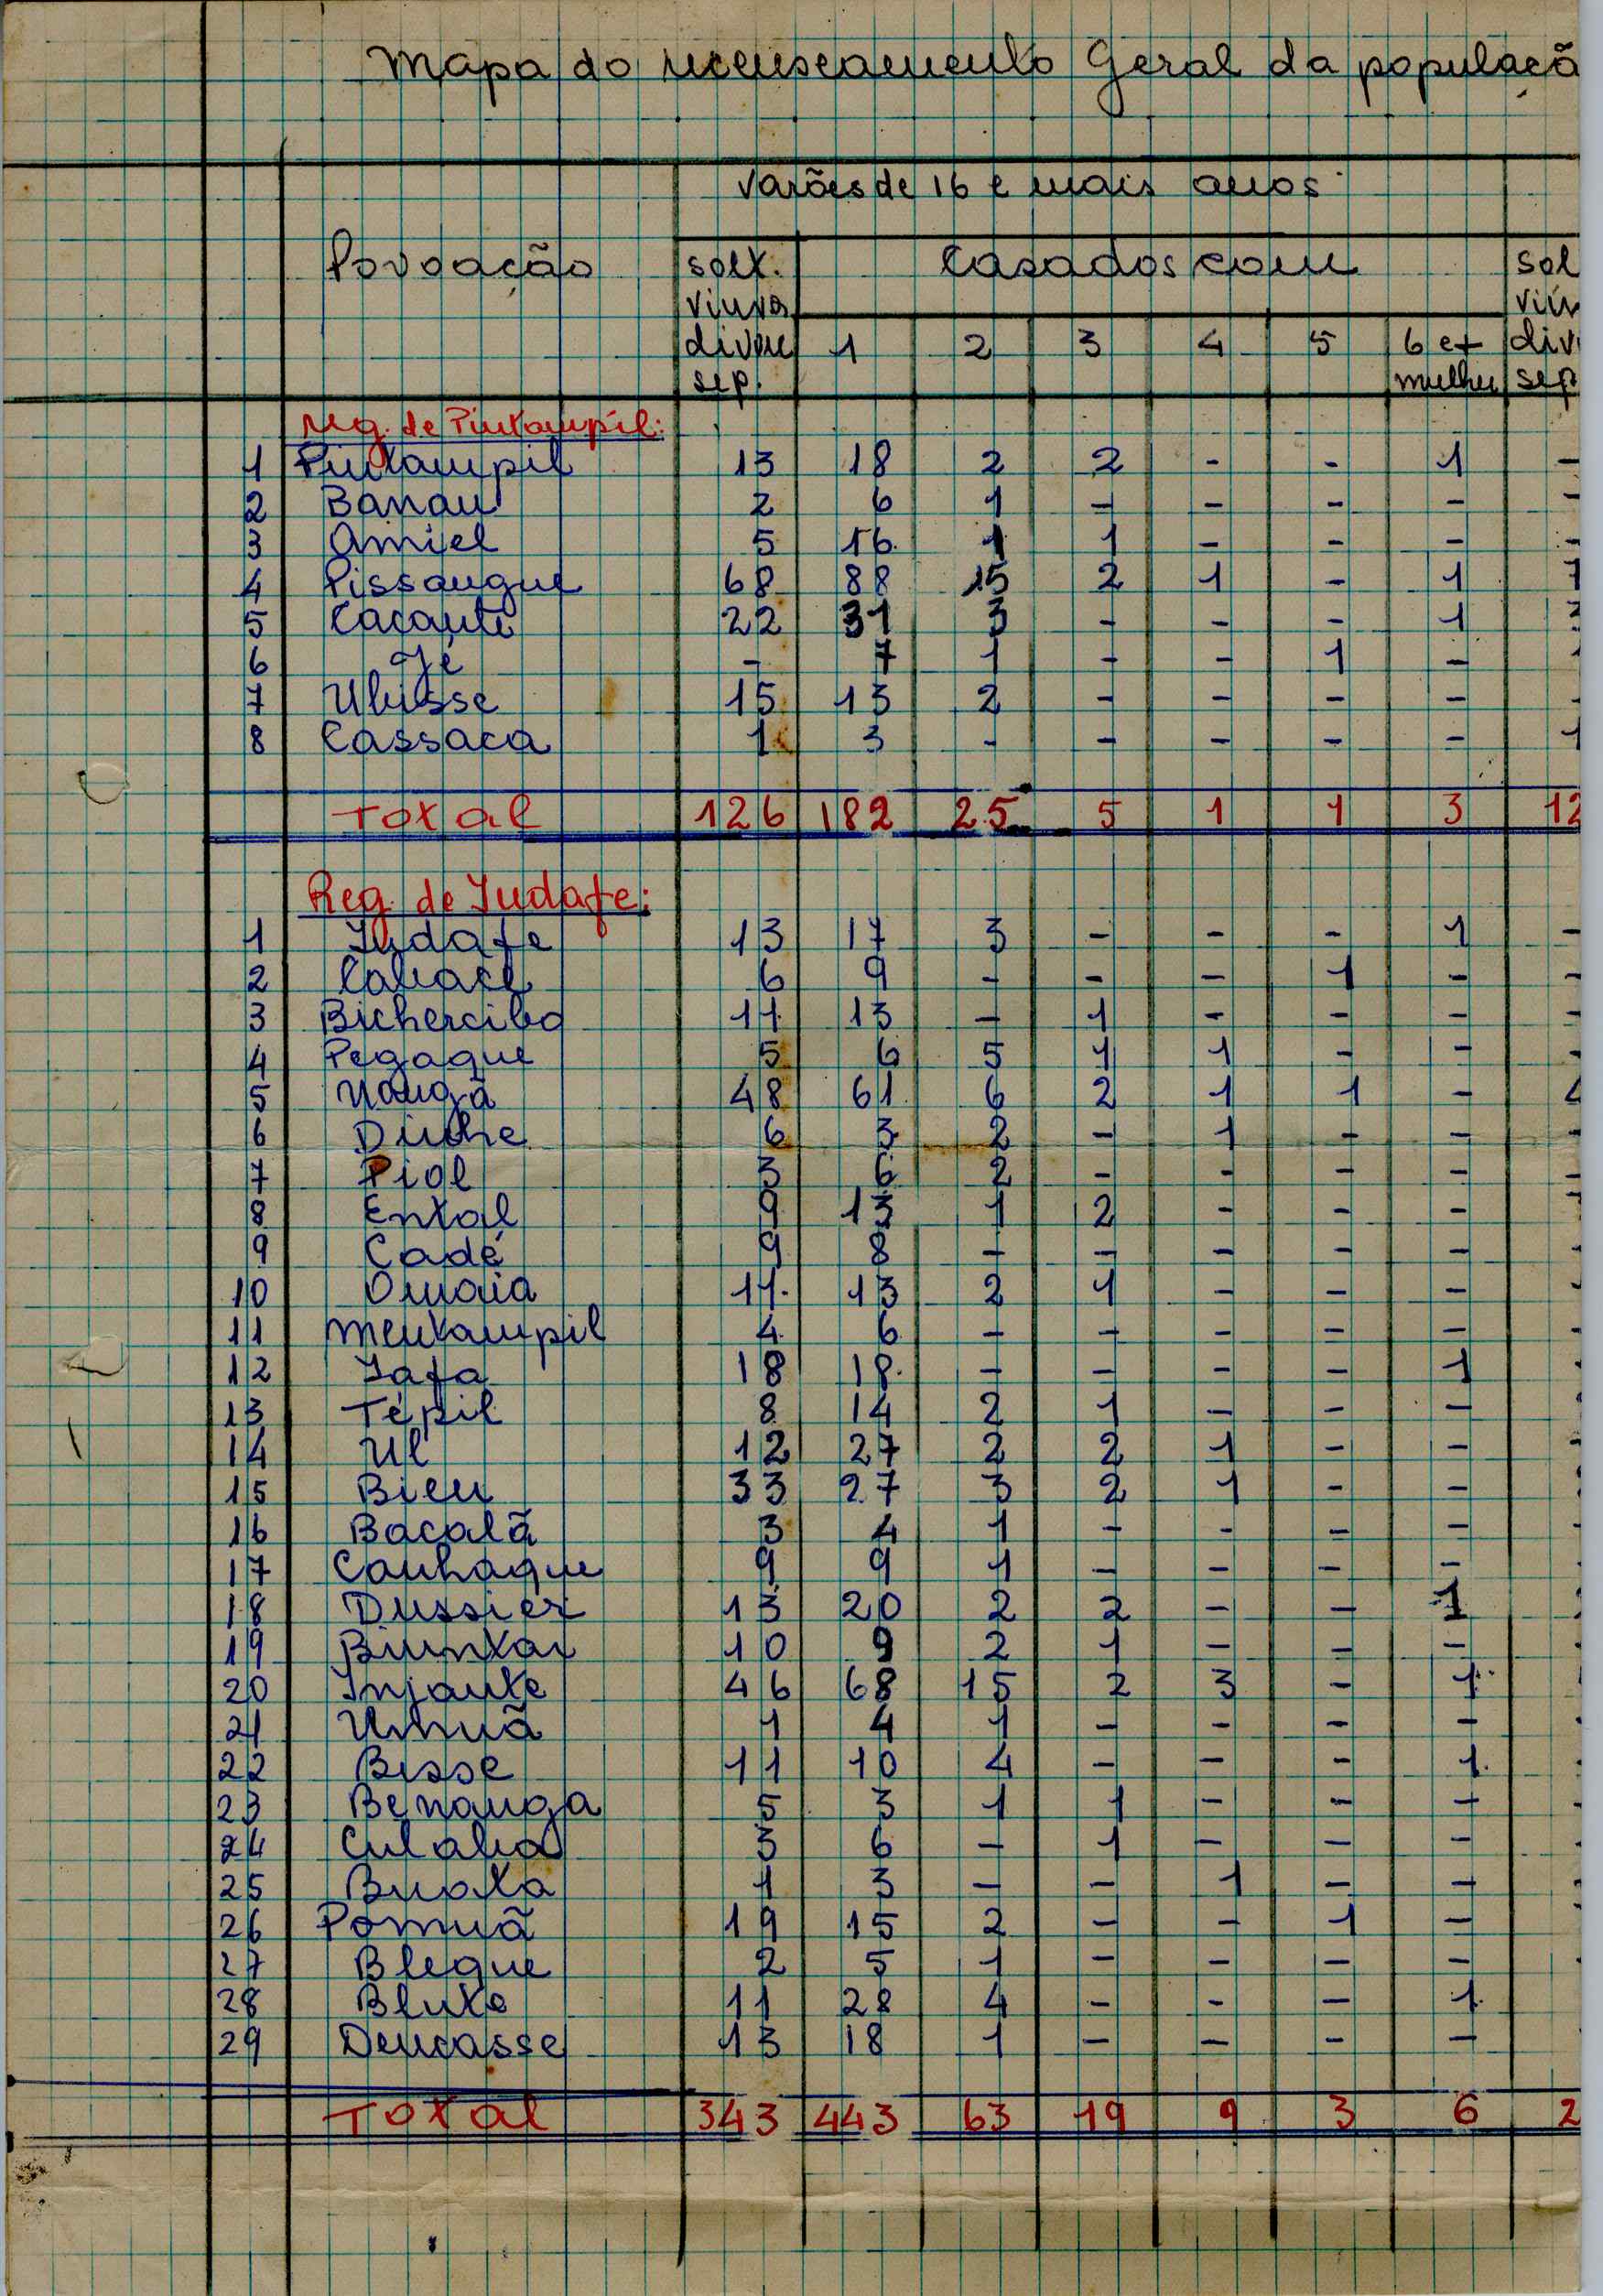 Mapa do recenseamento Geral da populaçã
Varões de 16 e mais anos
Povoação solt. Casados com sol
viuvos viu
divorc 1 2 3 4 5 6 e + div
sep. mulher sep
Reg. de Pintampil:
1 Pintampil 13 18 2 2 - - 1 -
2 Banau 2 6 1 - - - - -
3 Amiel 5 16 1 1 - - - -
4 Pissangue 68 88 15 2 1 - 1 7
5 Cacante 22 31 3 - - - 1 3
6 Jé - 7 1 - - 1 -
7 Ubisse 15 13 2 - - - -
8 Cassaca 1 3 - - - - - 1
Total 126 182 25 5 1 1 3 12
Reg. de Iudafe:
1 Iudafe 13 17 3 - - - 1 -
2 6 9 - - - 1 - -
3 Bichercibo 11 13 - 1 - - - -
4 Pegaque 5 6 5 1 1 - - -
5 Nangã 48 61 6 2 1 1 -
6 6 3 2 - 1 - - -
7 Piol 3 6 2 - - - - -
8 Ental 9 13 1 2 - - -
9 Cadé 9 8 - - - - -
10 Omaia 11 13 2 1 - - -
11 Mentampil 4 6 - - - - -
12 Iafa 18 18 - - - - 1
13 Tépil 8 14 2 1 - - -
14 Ul 12 27 2 2 1 - -
15 Bieu 33 27 3 2 1 - -
16 Bacalã 3 4 1 - - - -
17 Canhaque 9 9 1 - - - -
18 Dussier 13 20 2 2 - - 1
19 10 9 2 1 - - -
20 Injante 46 68 15 2 3 - 1
21 Umuã 1 4 1 - - - -
22 Bisse 11 10 4 - - - 1
23 Benanga 5 3 1 1 - - -
24 3 6 - 1 - - -
25 Buota 1 3 - - 1 - -
26 Pomuã 19 15 2 - - 1 -
27 Blegue 2 5 1 - - - -
28 Blute 11 28 4 - - - 1
29 Dencasse 13 18 1 - - - -
Total 343 443 63 19 9 3 6 2